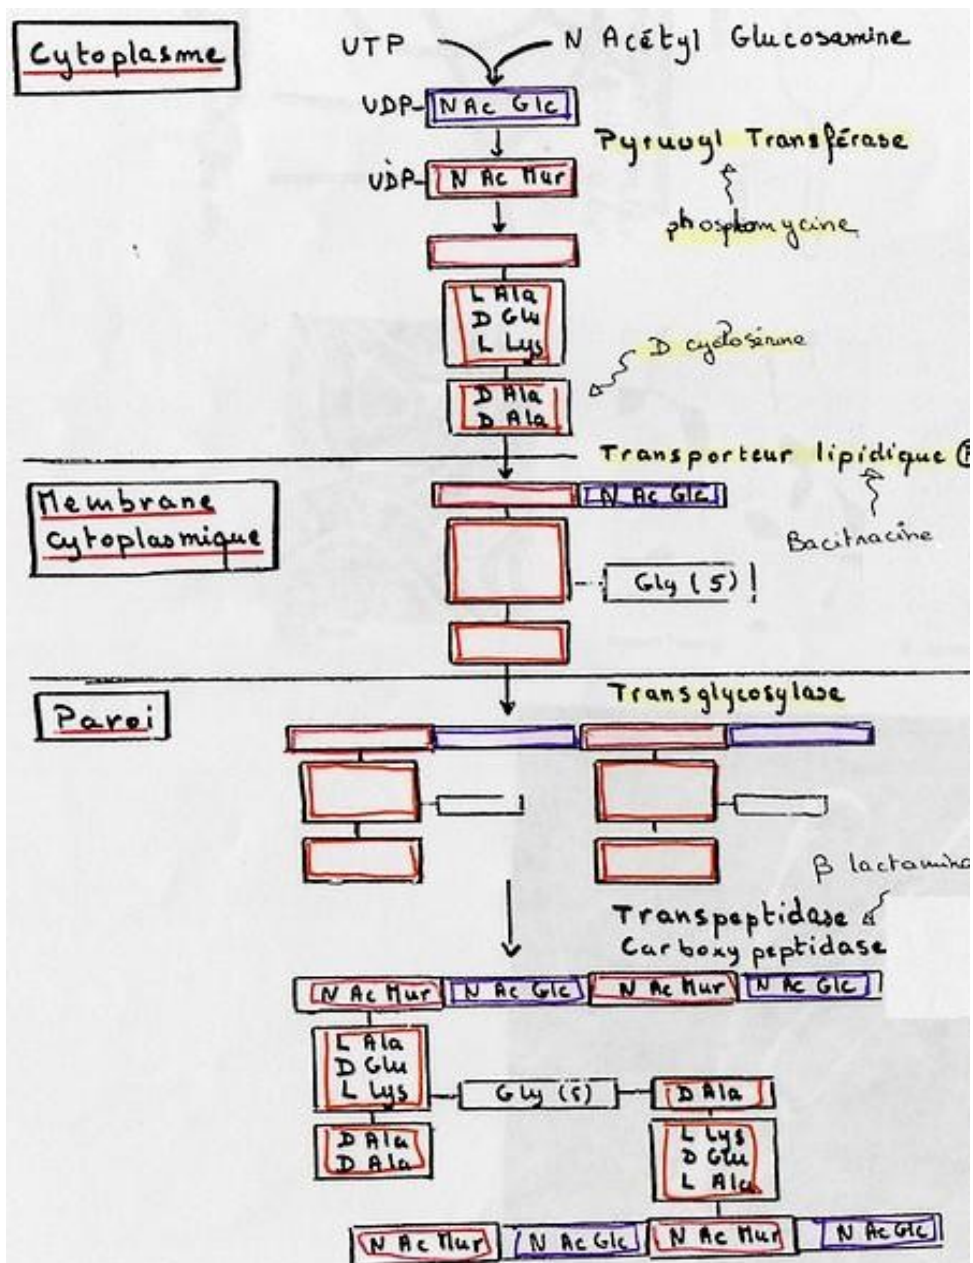 Cytoplasme
UTP
N Acétyl Glucosamine
UDP- N Ac Glc
Pyruvyl Transférase
UDP- N Ac Mur
phosphomycine
L Ala
D Glu
L Lys
D cyclosérine
D Ala
D Ala
Transporteur lipidique
Membrane
cytoplasmique
N Ac Glc
Bacitracine
Gly (5)
Transglycosylase
Paroi
β lactamine
Transpeptidase
Carboxy peptidase
N Ac Mur N Ac Glc N Ac Mur N Ac Glc
L Ala
D Glu
L Lys
Gly (5)
D Ala
D Ala
D Ala
L Lys
D Glu
L Ala
N Ac Mur N Ac Glc N Ac Mur N Ac Glc